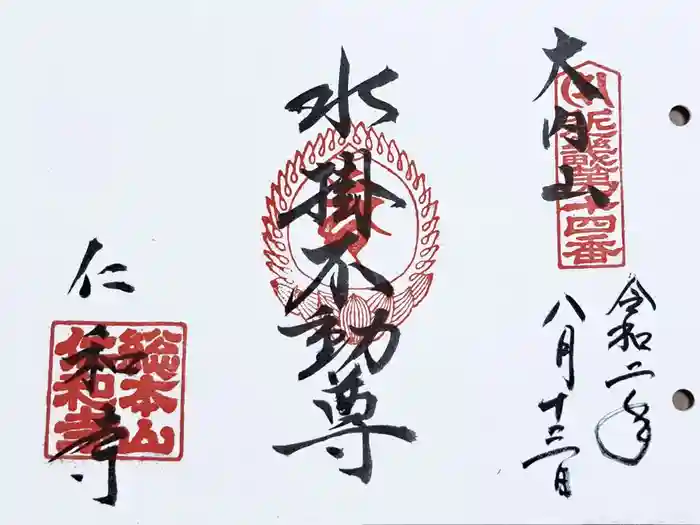 大内山
近畿第十四番
令和二年
八月十三日
水掛不動尊
仁和寺
総本山
仁和寺